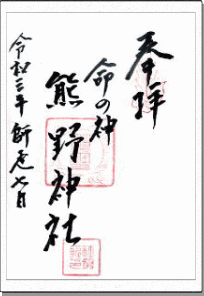 奉拝
命の神
熊野神社
令和三年 師走 七日